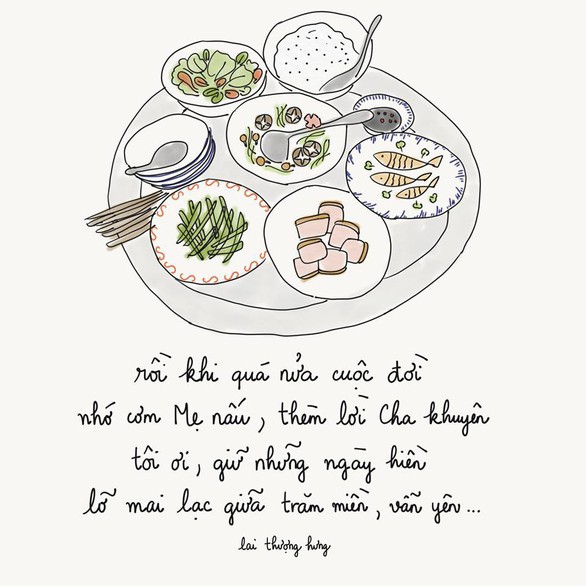 rồi khi quá nửa cuộc đời
nhớ cơm Mẹ nấu, thèm lời Cha khuyên
tôi ơi, giữ những ngày hiền
lỡ mai lạc giữa trăm miền, vẫn yên...
lai thượng hưng